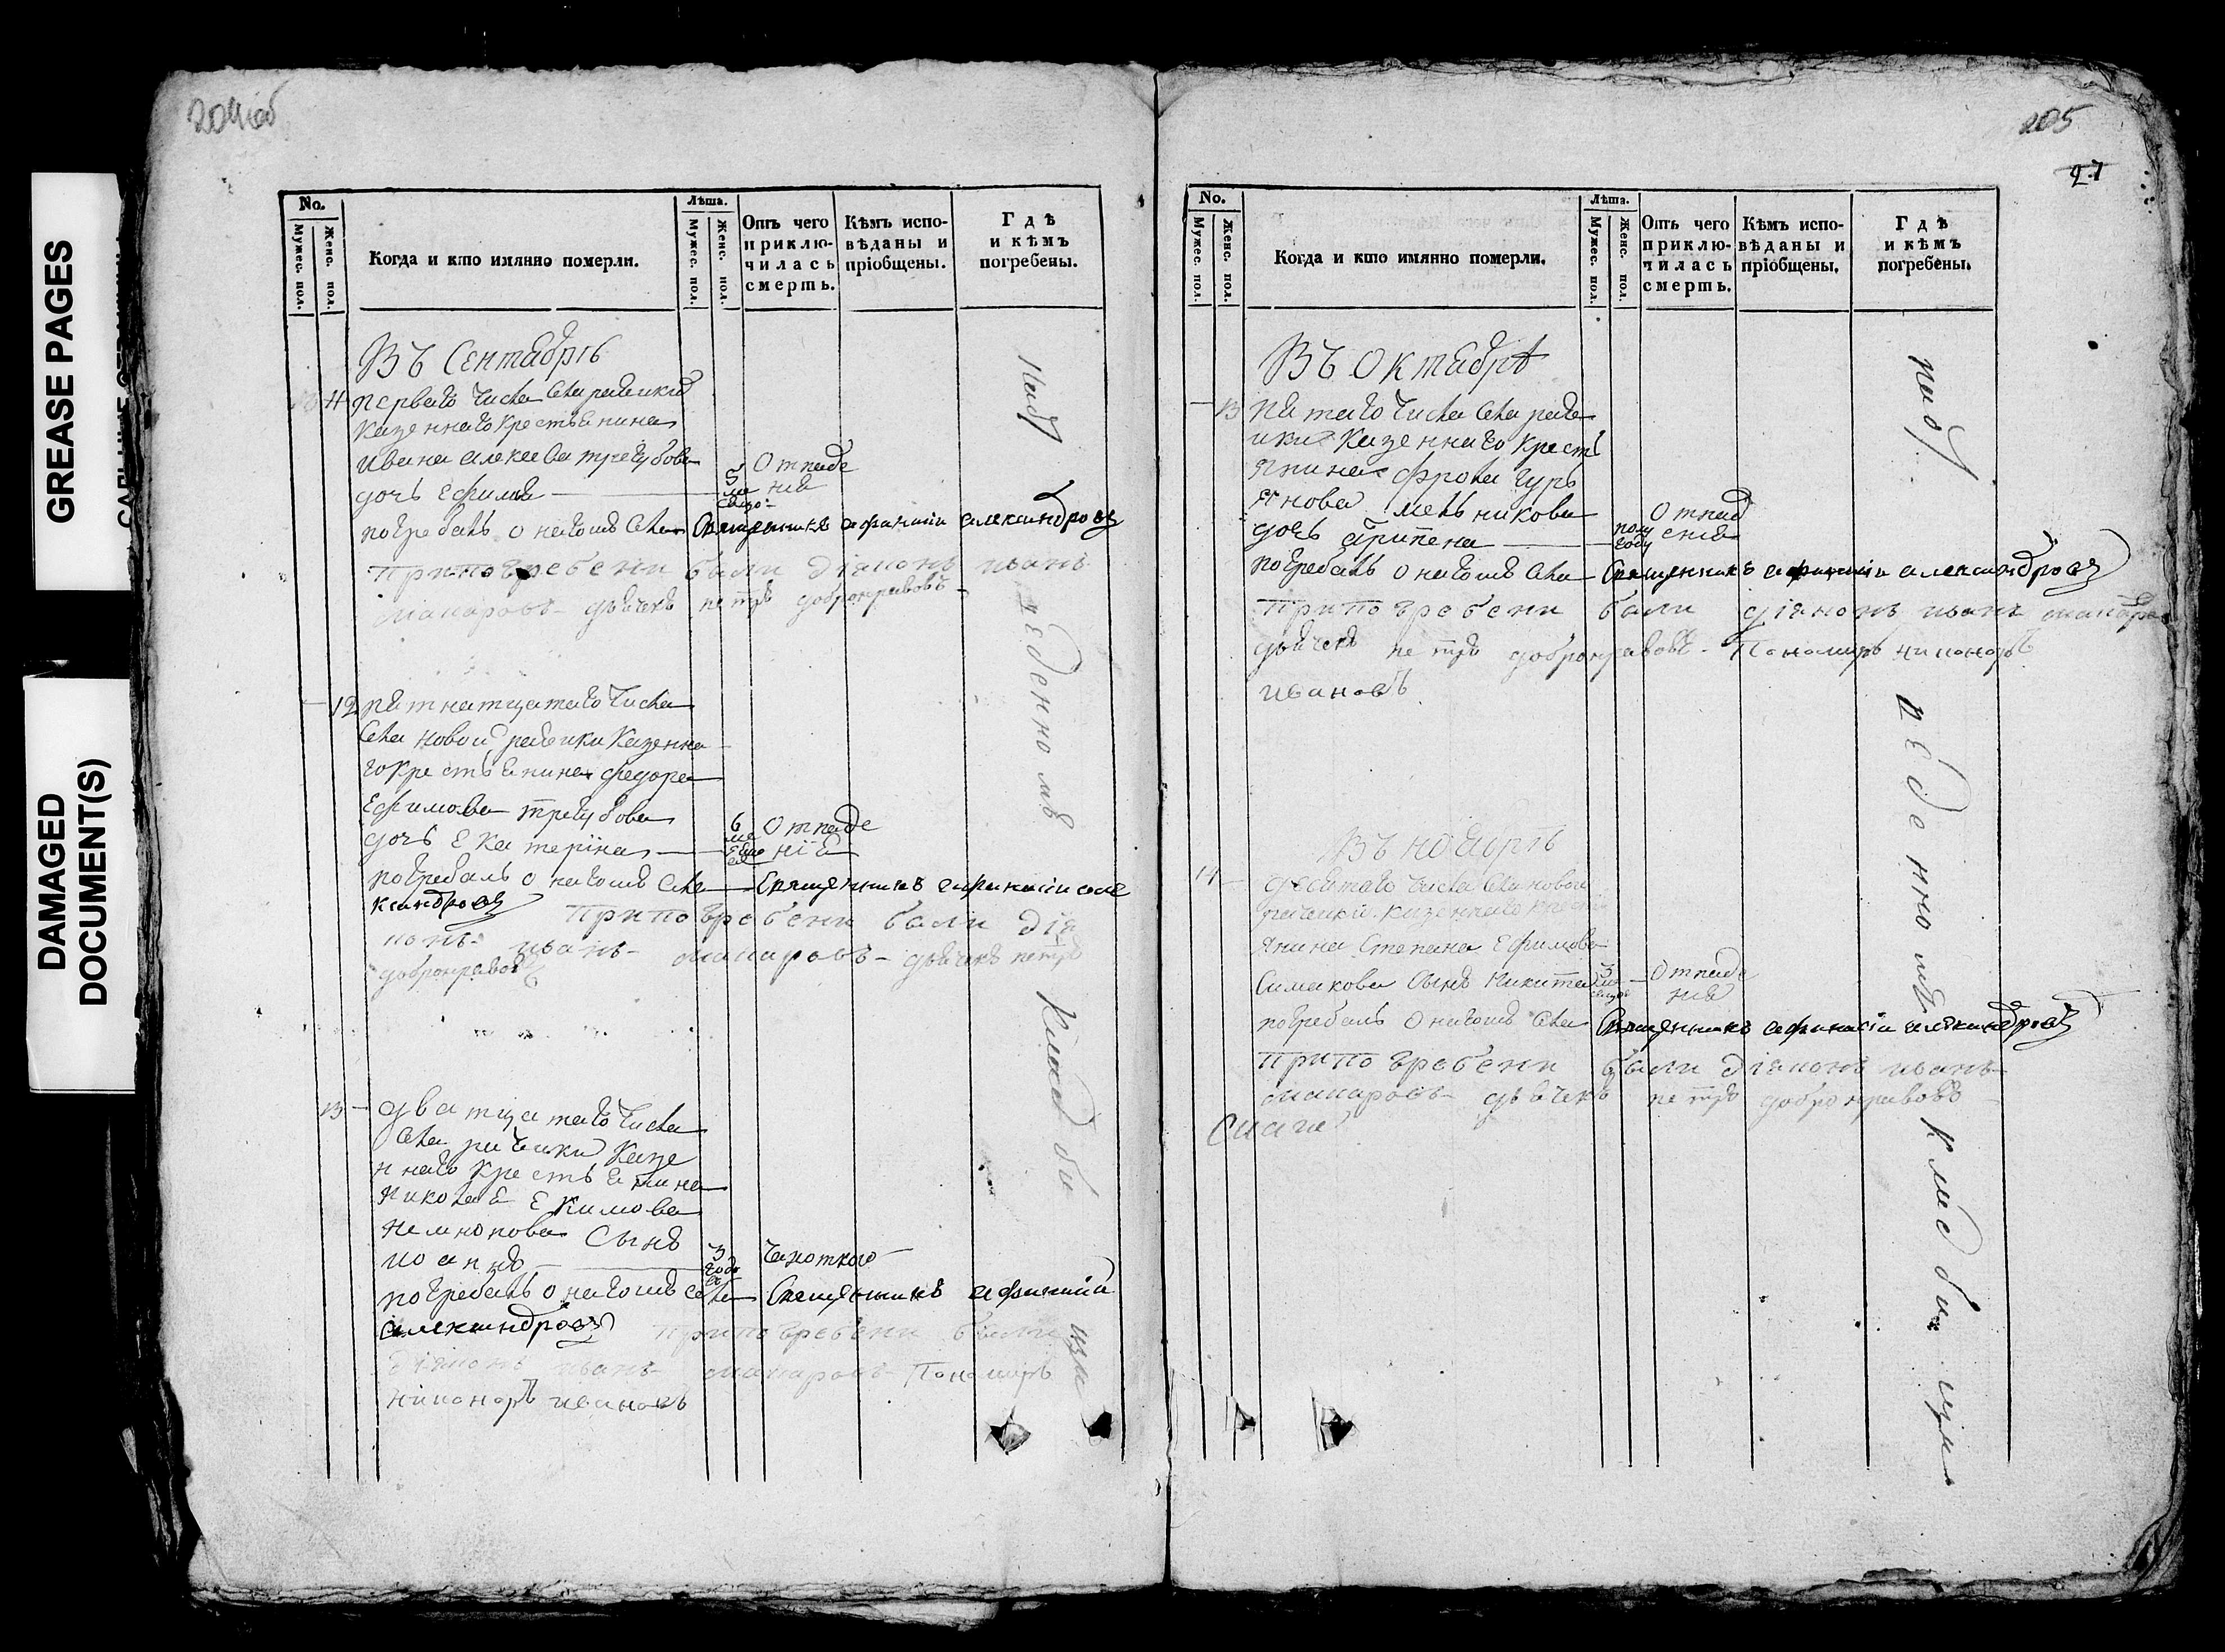 GREASE PAGES
DAMAGED
DOCUMENT(S)
204об
No.
Мужес. пол.
Женс. пол.
Когда и кто имянно померли.
Лѣта.
Мужес. пол.
Женс. пол.
Отъ чего
приклю-
чилась
смерть.
Кѣмъ испо-
вѣданы и
пріобщены.
Гдѣ
и кѣмъ
погребены.
Въ Сентябрѣ
11 перваго числа села
казеннаго крестьянина
ивана трегубова
дочь
5
Отпаде
нія
погребалъ онагожъ села Священникъ афанасіи александровъ
При погребени были діяконъ иванъ
макаровъ дьячекъ петръ добронравовъ
12 пятнатцатаго числа
села новои казенна
го крестьянина федора
Ефимова трегубова
дочь Екатеріна
6
Отпаде
нія
погребалъ онагожъ села Священникъ афанасіи але
ксандровъ При погребени были дія
конъ иванъ макаровъ дьячекъ петръ
добронравовъ
13 дватцатаго числа
села казе
ннаго крестьянина
николая Екимова
сынъ
иоаннъ
3
года
чахоткою
погребалъ онагожъ села Священникъ афанасіи
александровъ При погребени были
діяконъ иванъ макаровъ Пономарь
никоноръ ивановъ
На от
веденномъ
кладби
щи
205
27
No.
Мужес. пол.
Женс. пол.
Когда и кто имянно померли.
Лѣта.
Мужес. пол.
Женс. пол.
Отъ чего
приклю-
чилась
смерть.
Кѣмъ испо-
вѣданы и
пріобщены.
Гдѣ
и кѣмъ
погребены.
Въ Октябрѣ
13 пятаго числа села
казеннаго крестъ
янина фрола гурь
янова мельникова
дочь агрипена
полу
году
Отпад
енія
погребалъ онагожъ села Священникъ афанасіи александровъ
При погребени были діяконъ иванъ макаров
дьячекъ петръ добронравовъ Пономарь никоноръ
ивановъ
Въ ноябрѣ
14 десятаго числа села новои
казеннаго крестъ
янина Степана Ефимова
Симакова сынъ никита
3
Отпаде
нія
погребалъ онагожъ села Священникъ афанасіи александровъ
При погребени были діяконъ иванъ
макаровъ дьячекъ петръ добронравовъ
веденномъ
кладби
щи